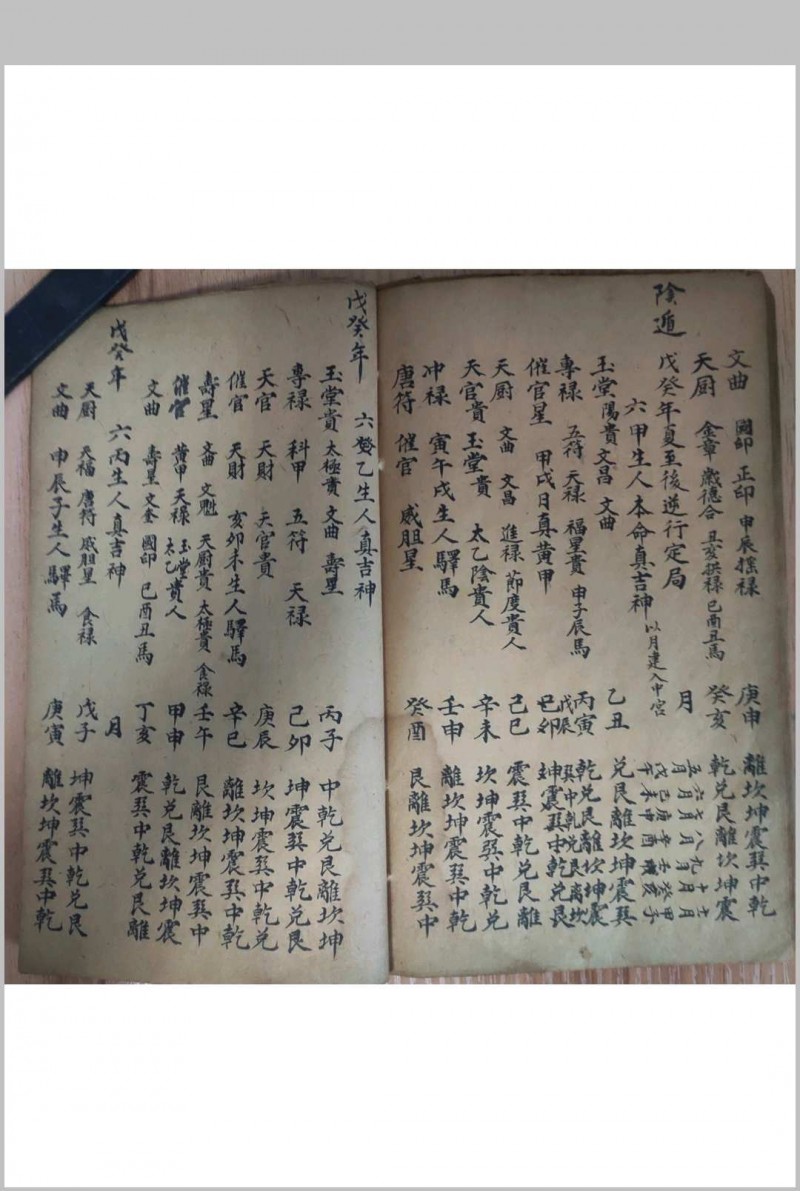 文曲 國印 正印 申辰搖禄 庚申 離坎坤震巽中乾
天厨 金章 歳德合 丑亥拱禄 巳酉丑馬 癸亥 乾兑艮離坎坤震
陰遁
戊癸年夏至後逆行定局 月
五月 六月 七月 八月 九月 十月 十一月
戊午 己未 庚申 辛酉 壬戌 癸亥 甲子
六甲生人本命真吉神 以月建入中宫
玉堂陽貴 文昌 文曲 乙丑 兑艮離坎坤震巽
專禄 五符 天禄 福星貴 申子辰馬 丙寅 乾兑艮離坎坤震
戊辰 巽中乾兑艮離坎
催官星 甲戌日真黄甲 己卯 坤震巽中乾兑艮
天厨 文曲 文昌 進禄 節度貴人 己巳 震巽中乾兑艮離
天官貴 玉堂貴 太乙陰貴人 辛未 坎坤震巽中乾兑
冲禄 寅午戌生人驛馬 壬申 離坎坤震巽中乾
唐符 催官 威胆星 癸酉 艮離坎坤震巽中
戊癸年 六乙生人真吉神
玉堂貴 太極貴 文曲 壽星 丙子 中乾兑艮離坎坤
專禄 科甲 五符 天禄 己卯 坤震巽中乾兑艮
天官 天財 天官貴 庚辰 坎坤震巽中乾兑
催官 天財 亥卯未生人驛馬 辛巳 離坎坤震巽中乾
壽星 文曲 文魁 天厨貴 太極貴 食禄 壬午 艮離坎坤震巽中
催官 黄甲 天禄 玉堂 太乙貴人 甲申 乾兑艮離坎坤震
文曲 壽星 文奎 國印 巳酉丑馬 丁亥 震巽中乾兑艮離
戊癸年 六丙生人真吉神 月
天厨 天福 唐符 威胆星 食禄 戊子 坤震巽中乾兑艮
文曲 申辰子生人驛馬 庚寅 離坎坤震巽中乾